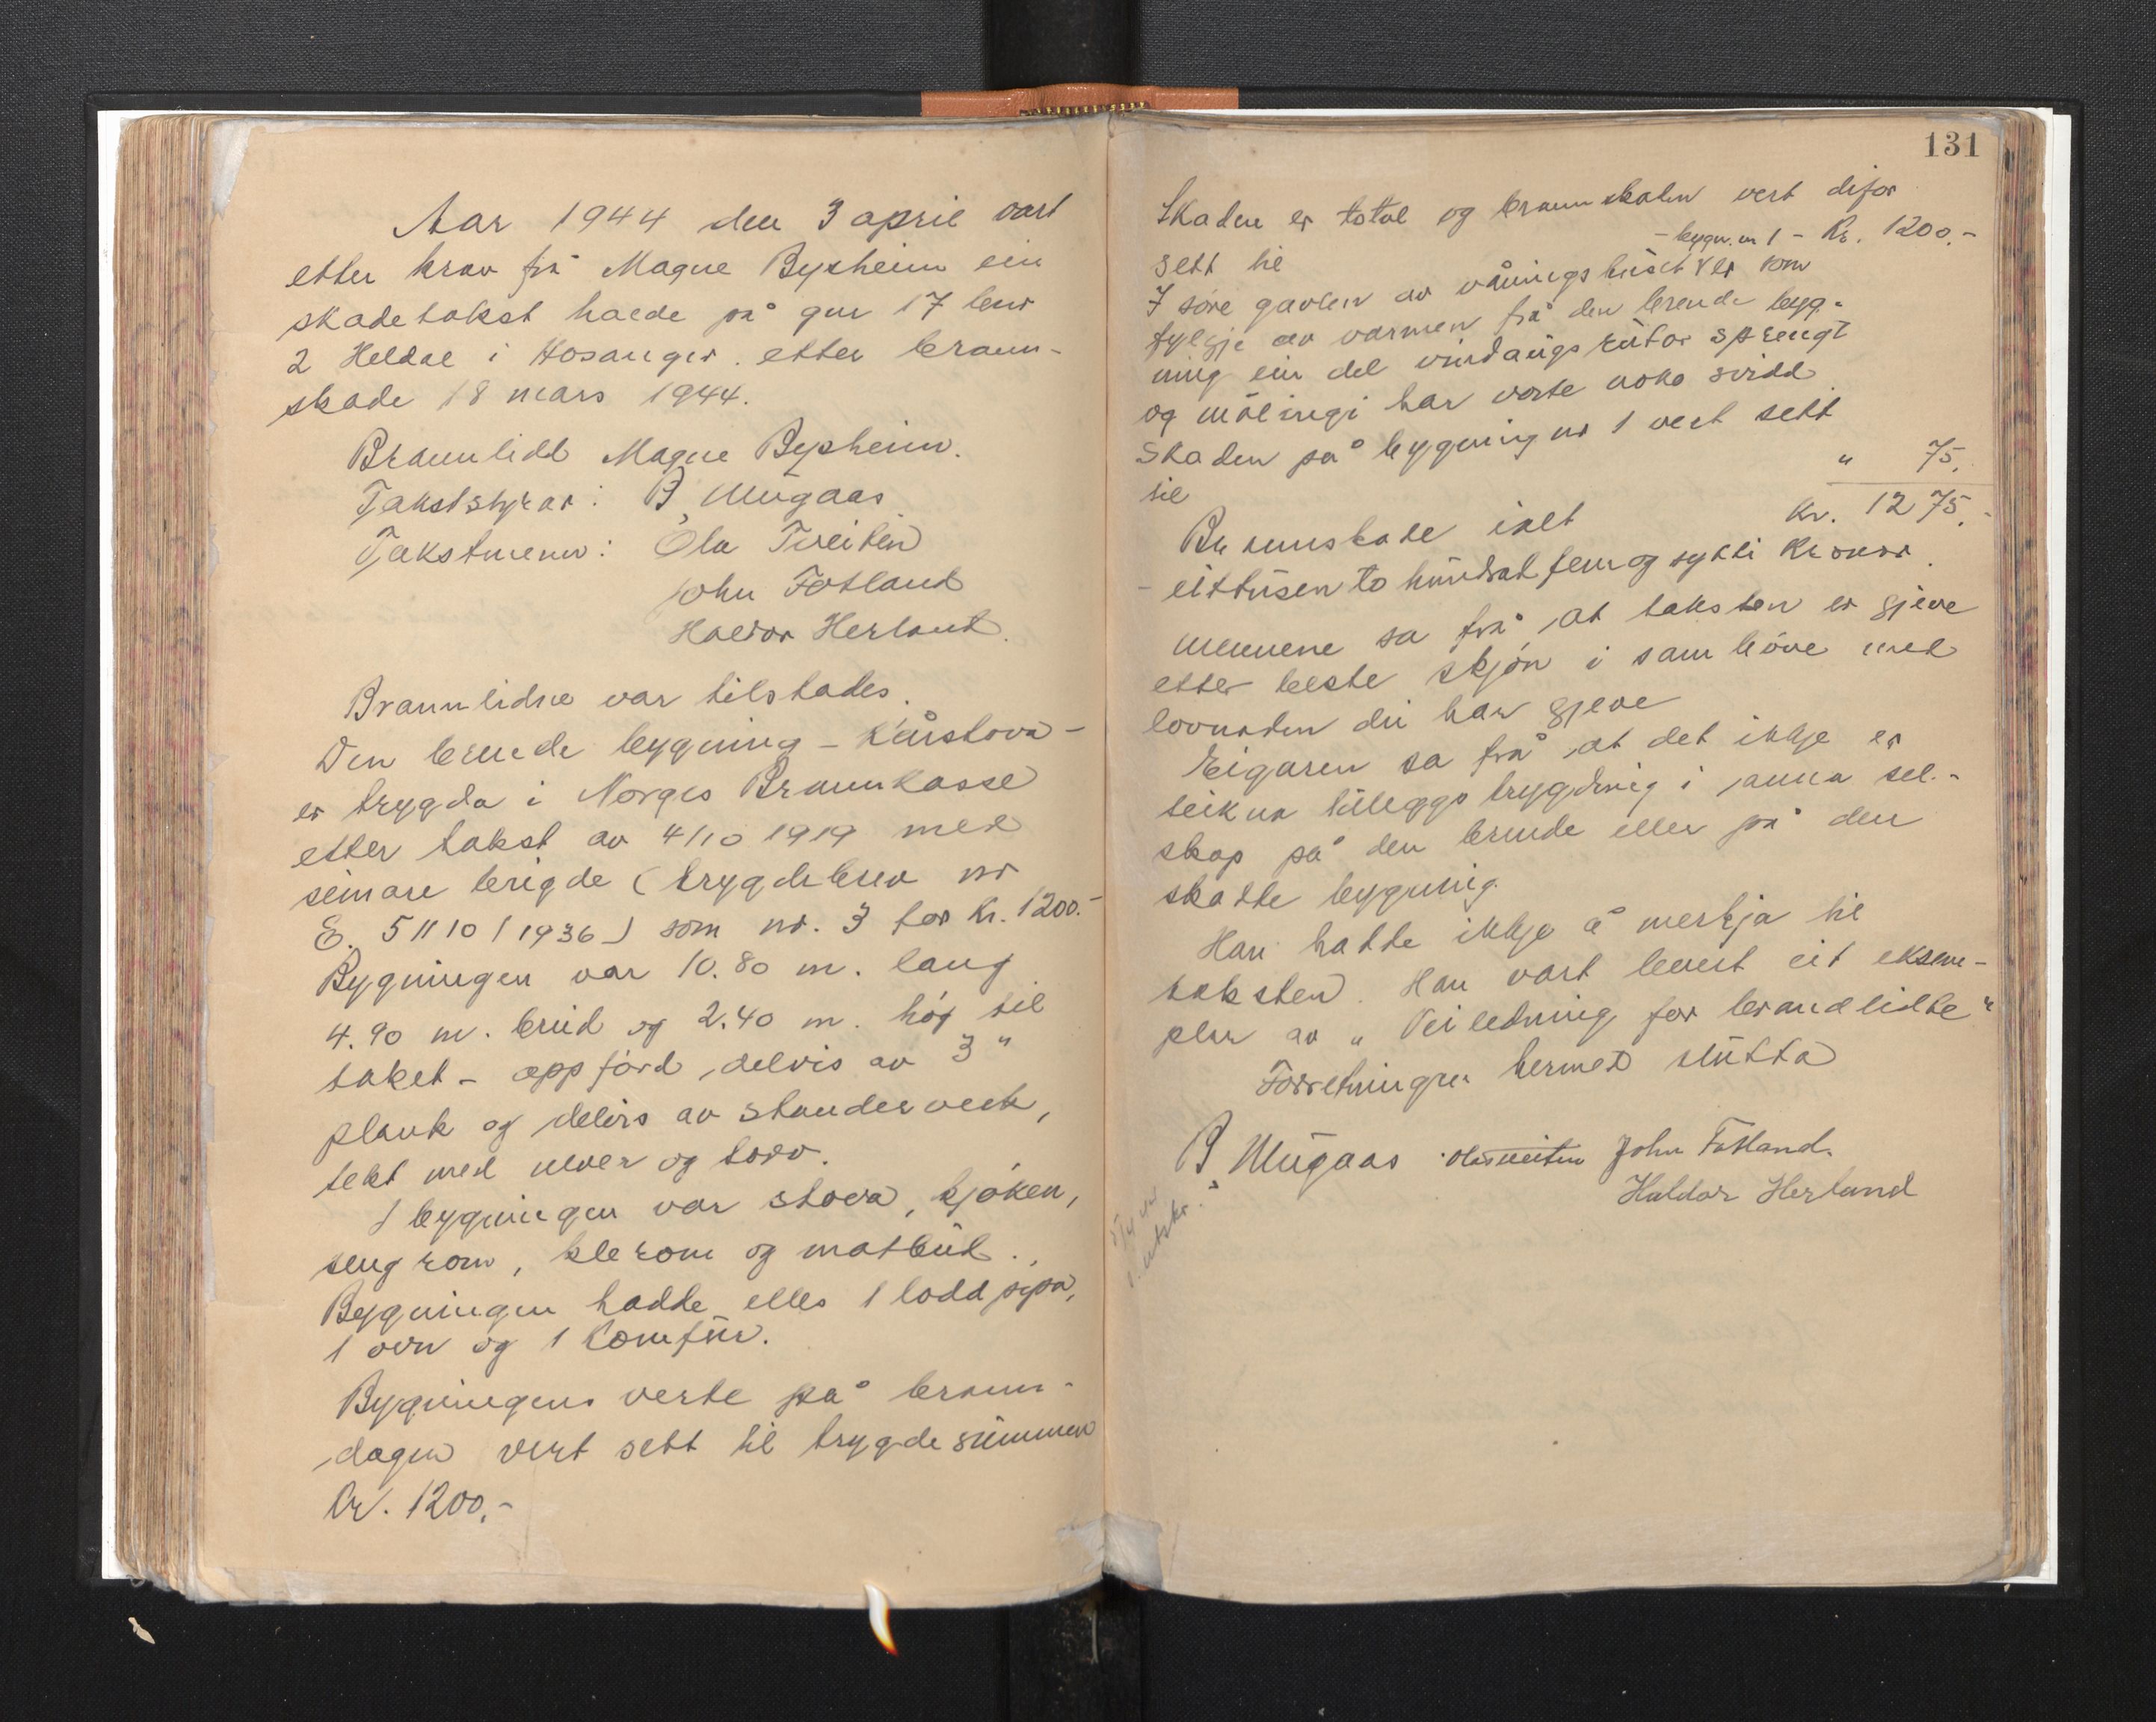 Aar 1944 den 3 april vart
etter krav frå Magne Bysheim ein
skadetakst halde på gnr 17 bnr
2 Heldal i Hosanger. etter brann-
skade 18 mars 1944.
Brannlidd Magne Bysheim.
Takststyrar: B. Mügaas
Takstmenn: Ola Tveiten
John Fotland
Haldor Herland.
Brannlidne var tilstades.
Den brende bygning - Kårstova -
er trygda i Norges Brannkasse
etter takst av 4/10 1919 med
seinare brigde (trygdebrev nr
E. 51110/1936) som nr. 3 for kr. 1200.-
Bygningen var 10.80 m. lang
4.90 m. breid og 2.40 m. høg til
taket - oppførd delvis av 3"
plank og delvis av standerverk,
tekt med never og torv.
I bygningen var stova, kjøken,
sengrom, klerom og matbud.
Bygningen hadde elles 1 lodd pipa,
1 ovn og 1 komfür.
Bygningens verde på brann-
dagen vert sett til trygdesümmen
Kr. 1200,-
131
Skaden er total og brannskaden vert difor
sett til Kr. 1200.-
I søre gavlen av våningshuset - bygn. nr 1 - er som
fylgje av varmen frå den brende byg-
ning ein del vindaügsrütor sprengt
og målingi har vorte noko svidd
Skaden på bygning nr 1 vert sett
til " 75.
Brannskade ialt kr. 1275.-
- eittüsen to hündrad fem og sytti kronor.
Mennene sa frå at taksten er gjeve
etter beste skjøn i samhøve med
lovnaden dei har gjeve
Eigaren sa frå at det ikkje er
teikna tilleggstrygding i anna sel-
skap på den brende eller på den
skadde bygning.
Han hadde ikkje å merkja til
taksten. Han vart levert eit eksem-
plar av "Veiledning for brandlidte"
Forretningen hermed slütta
B Mügaas Ola Tveiten John Fotland.
Haldor Herland
utskr.